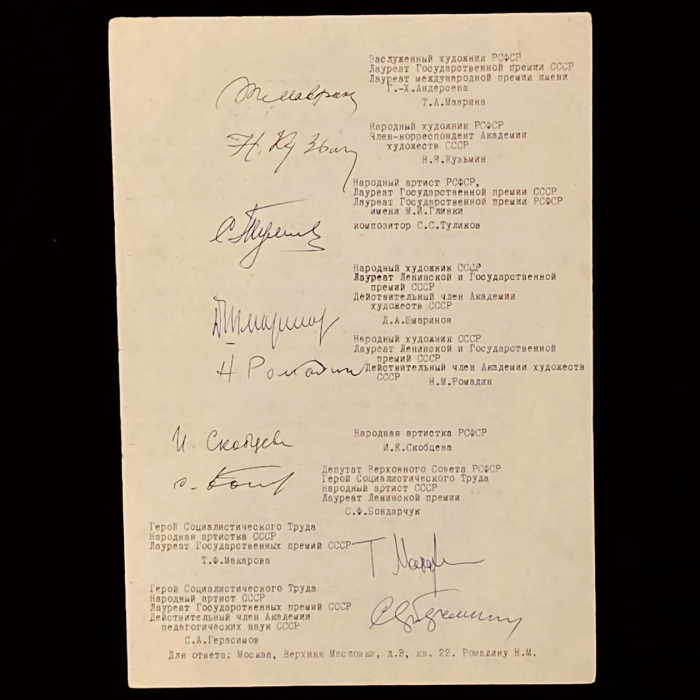 Заслуженный художник РСФСР
Лауреат Государственной премии СССР
Лауреат международной премии имени
Г.-Х.Андерсена
Т.А.Маврина
Народный художник РСФСР
Член-корреспондент Академии
художеств СССР
Н. Кузьмин
Н.В.Кузьмин
Народный артист РСФСР,
Лауреат Государственной премии СССР
Лауреат Государственной премии РСФСР
имени М.И.Глинки
композитор С.С.Туликов
Народный художник СССР
Лауреат Ленинской и Государственной
премий СССР
Действительный член Академии
художеств СССР
Д.А.Шмаринов
Народный художник СССР
Лауреат Ленинской и Государственной
премий СССР
Н Ромадин
Действительный член Академии художеств
СССР
Н.М.Ромадин
И. Скобцева
Народная артистка РСФСР
И.К.Скобцева
Депутат Верховного Совета РСФСР
Герой Социалистического Труда
Народный артист СССР
Лауреат Ленинской премии
С.Ф.Бондарчук
Герой Социалистического Труда
Народная артистка СССР
Лауреат Государственных премий СССР
Т.Ф.Макарова
Герой Социалистического Труда
Народный артист СССР
Лауреат Государственных премий СССР
Действительный член Академии
педагогических наук СССР
С.А.Герасимов
Для ответа: Москва, Верхняя Масловка, д.8, кв. 22. Ромадину Н.М.